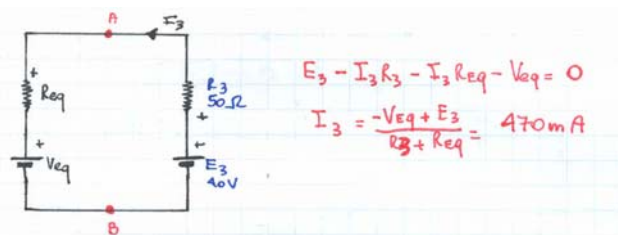 A
I3
+
Req
R3
50Ω
+
+
+
Veq
E3
40V
B
E3 - I3R3 - I3Req - Veq = 0
I3 = -VEq + E3 / R3 + Req = 470mA